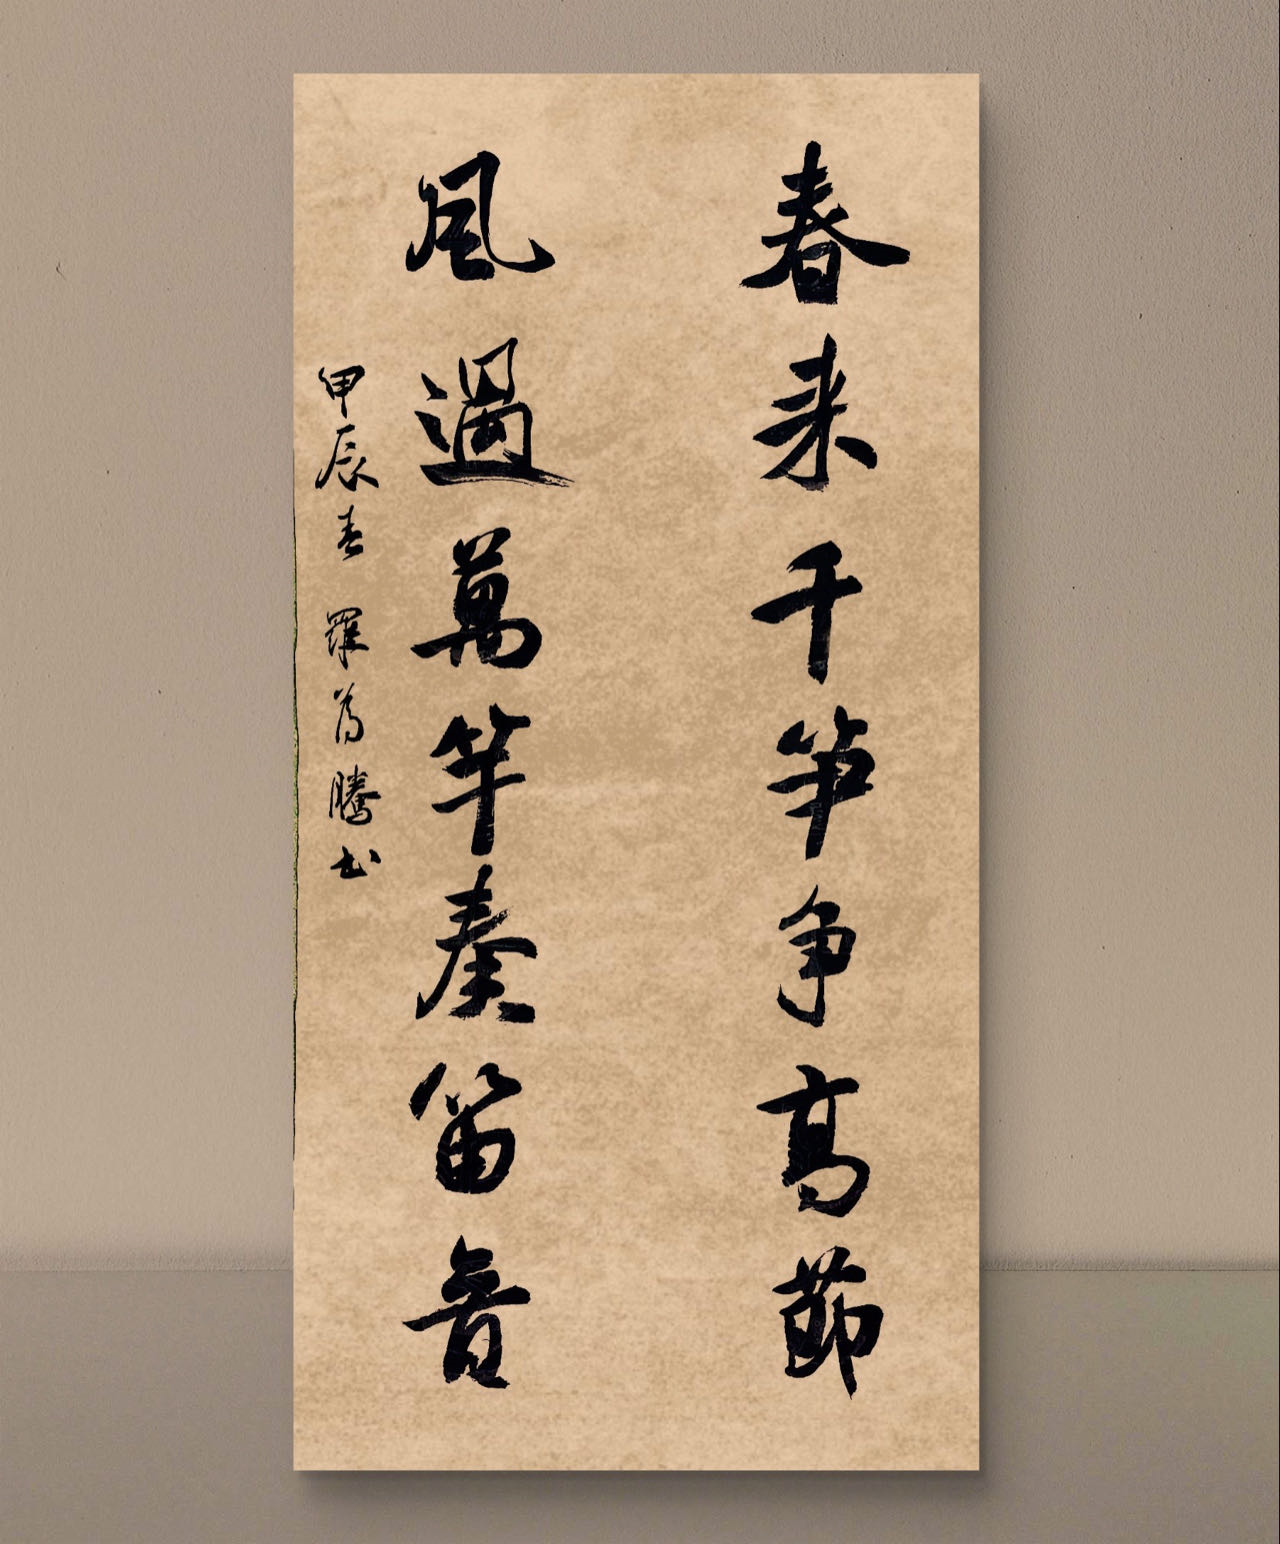 春来千笋争高節
風過萬竿奏笛音
甲辰春 羅為騰书